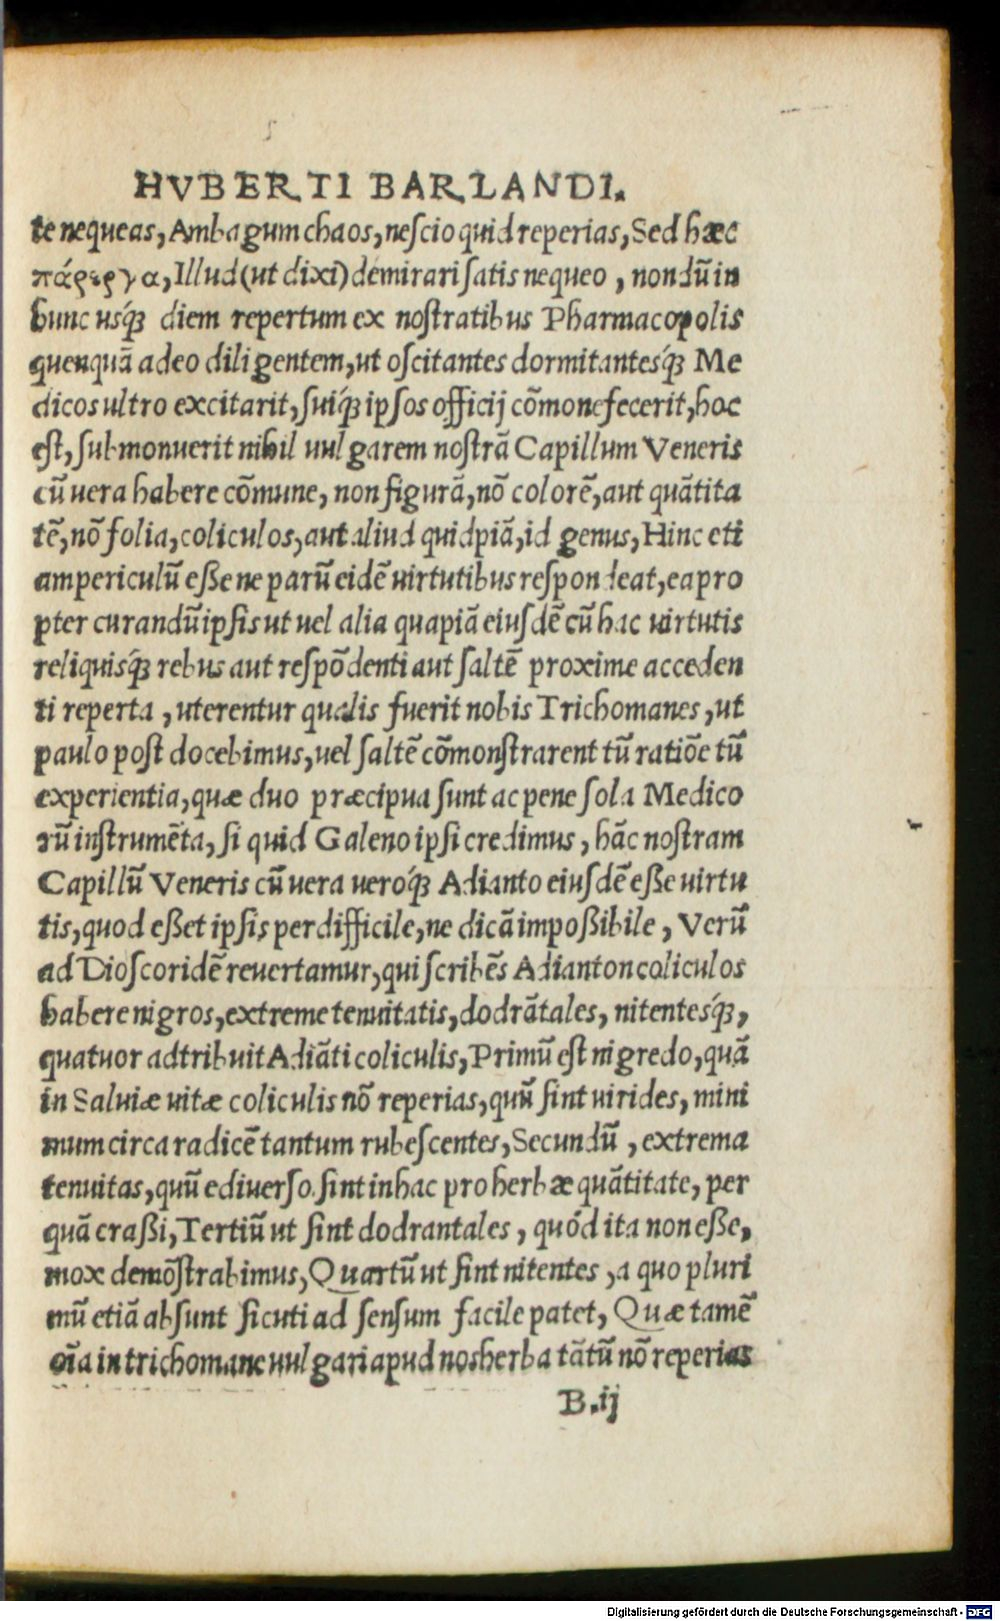 HVBERTI BARLANDI.
te nequeas, Ambagum chaos, nescio quid reperias, Sed hæc
πάρεργα, Illud (ut dixi) demirari satis nequeo, nondũ in
hunc usq́; diem repertum ex nostratibus Pharmacopolis
quenquã adeo diligentem, ut oscitantes dormitantesq́; Me
dicos ultro excitarit, suiq́; ipsos officij cõmonefecerit, hoc
est, submonuerit nihil uulgarem nostrã Capillum Veneris
cũ uera habere cõmune, non figurã, nõ colorẽ, aut quãtita
tẽ, nõ folia, coliculos, aut aliud quidpiã, id genus, Hinc eti
am periculũ eße ne parũ eidẽ uirtutibus respondeat, eapro
pter curandũ ipsis ut uel alia quapiã eiusdẽ cũ hac uirtutis
reliquisq́; rebus aut respõdenti aut saltẽ proxime acceden
ti reperta, uterentur qualis fuerit nobis Trichomanes, ut
paulo post docebimus, uel saltẽ cõmonstrarent tũ ratiõe tũ
experientia, quæ duo præcipua sunt ac pene sola Medico
rũ instrumẽta, si quid Galeno ipsi credimus, hãc nostram
Capillũ Veneris cũ uera ueroq́; Adianto eiusdẽ eße uirtu
tis, quod eßet ipsis perdifficile, ne dicã impoßibile, Verũ
ad Dioscoridẽ reuertamur, qui scribẽs Adianton coliculos
habere nigros, extreme tenuitatis, dodrãtales, nitentesq́;,
quatuor adtribuit Adiãti coliculis, Primũ est nigredo, quã
in Saluiæ uitæ coliculis nõ reperias, quũ sint uirides, mini
mum circa radicẽ tantum rubescentes, Secundũ, extrema
tenuitas, quũ ediuerso sint in hac pro herbæ quãtitate, per
quã craßi, Tertiũ ut sint dodrantales, quód ita non eße,
mox demõstrabimus, Quartũ ut sint nitentes, a quo pluri
mũ etiã absunt sicuti ad sensum facile patet, Quæ tamẽ
oĩa in trichomane uulgari apud nos herba tãtũ nõ reperias
B.ij
Digitalisierung gefördert durch die Deutsche Forschungsgemeinschaft - DFG